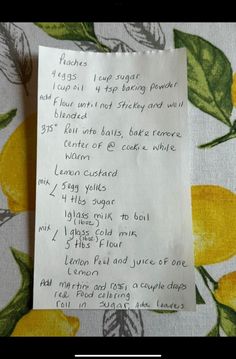 Peaches
4 eggs 1 cup sugar
1 cup oil 4 tsp baking powder
Add Flour until not stickey and well
blended
375° Roll into balls, bake remove
center of @ cookie while
warm
Lemon custard
mix 5 egg yolks
4 tbs sugar
1 glass milk to boil
(16oz)
mix 1 glass cold milk
(16oz)
5 tbs flour
Lemon Peel and juice of one
lemon
Add martini and rossi, a couple drops
red food coloring
roll in sugar, add leaves